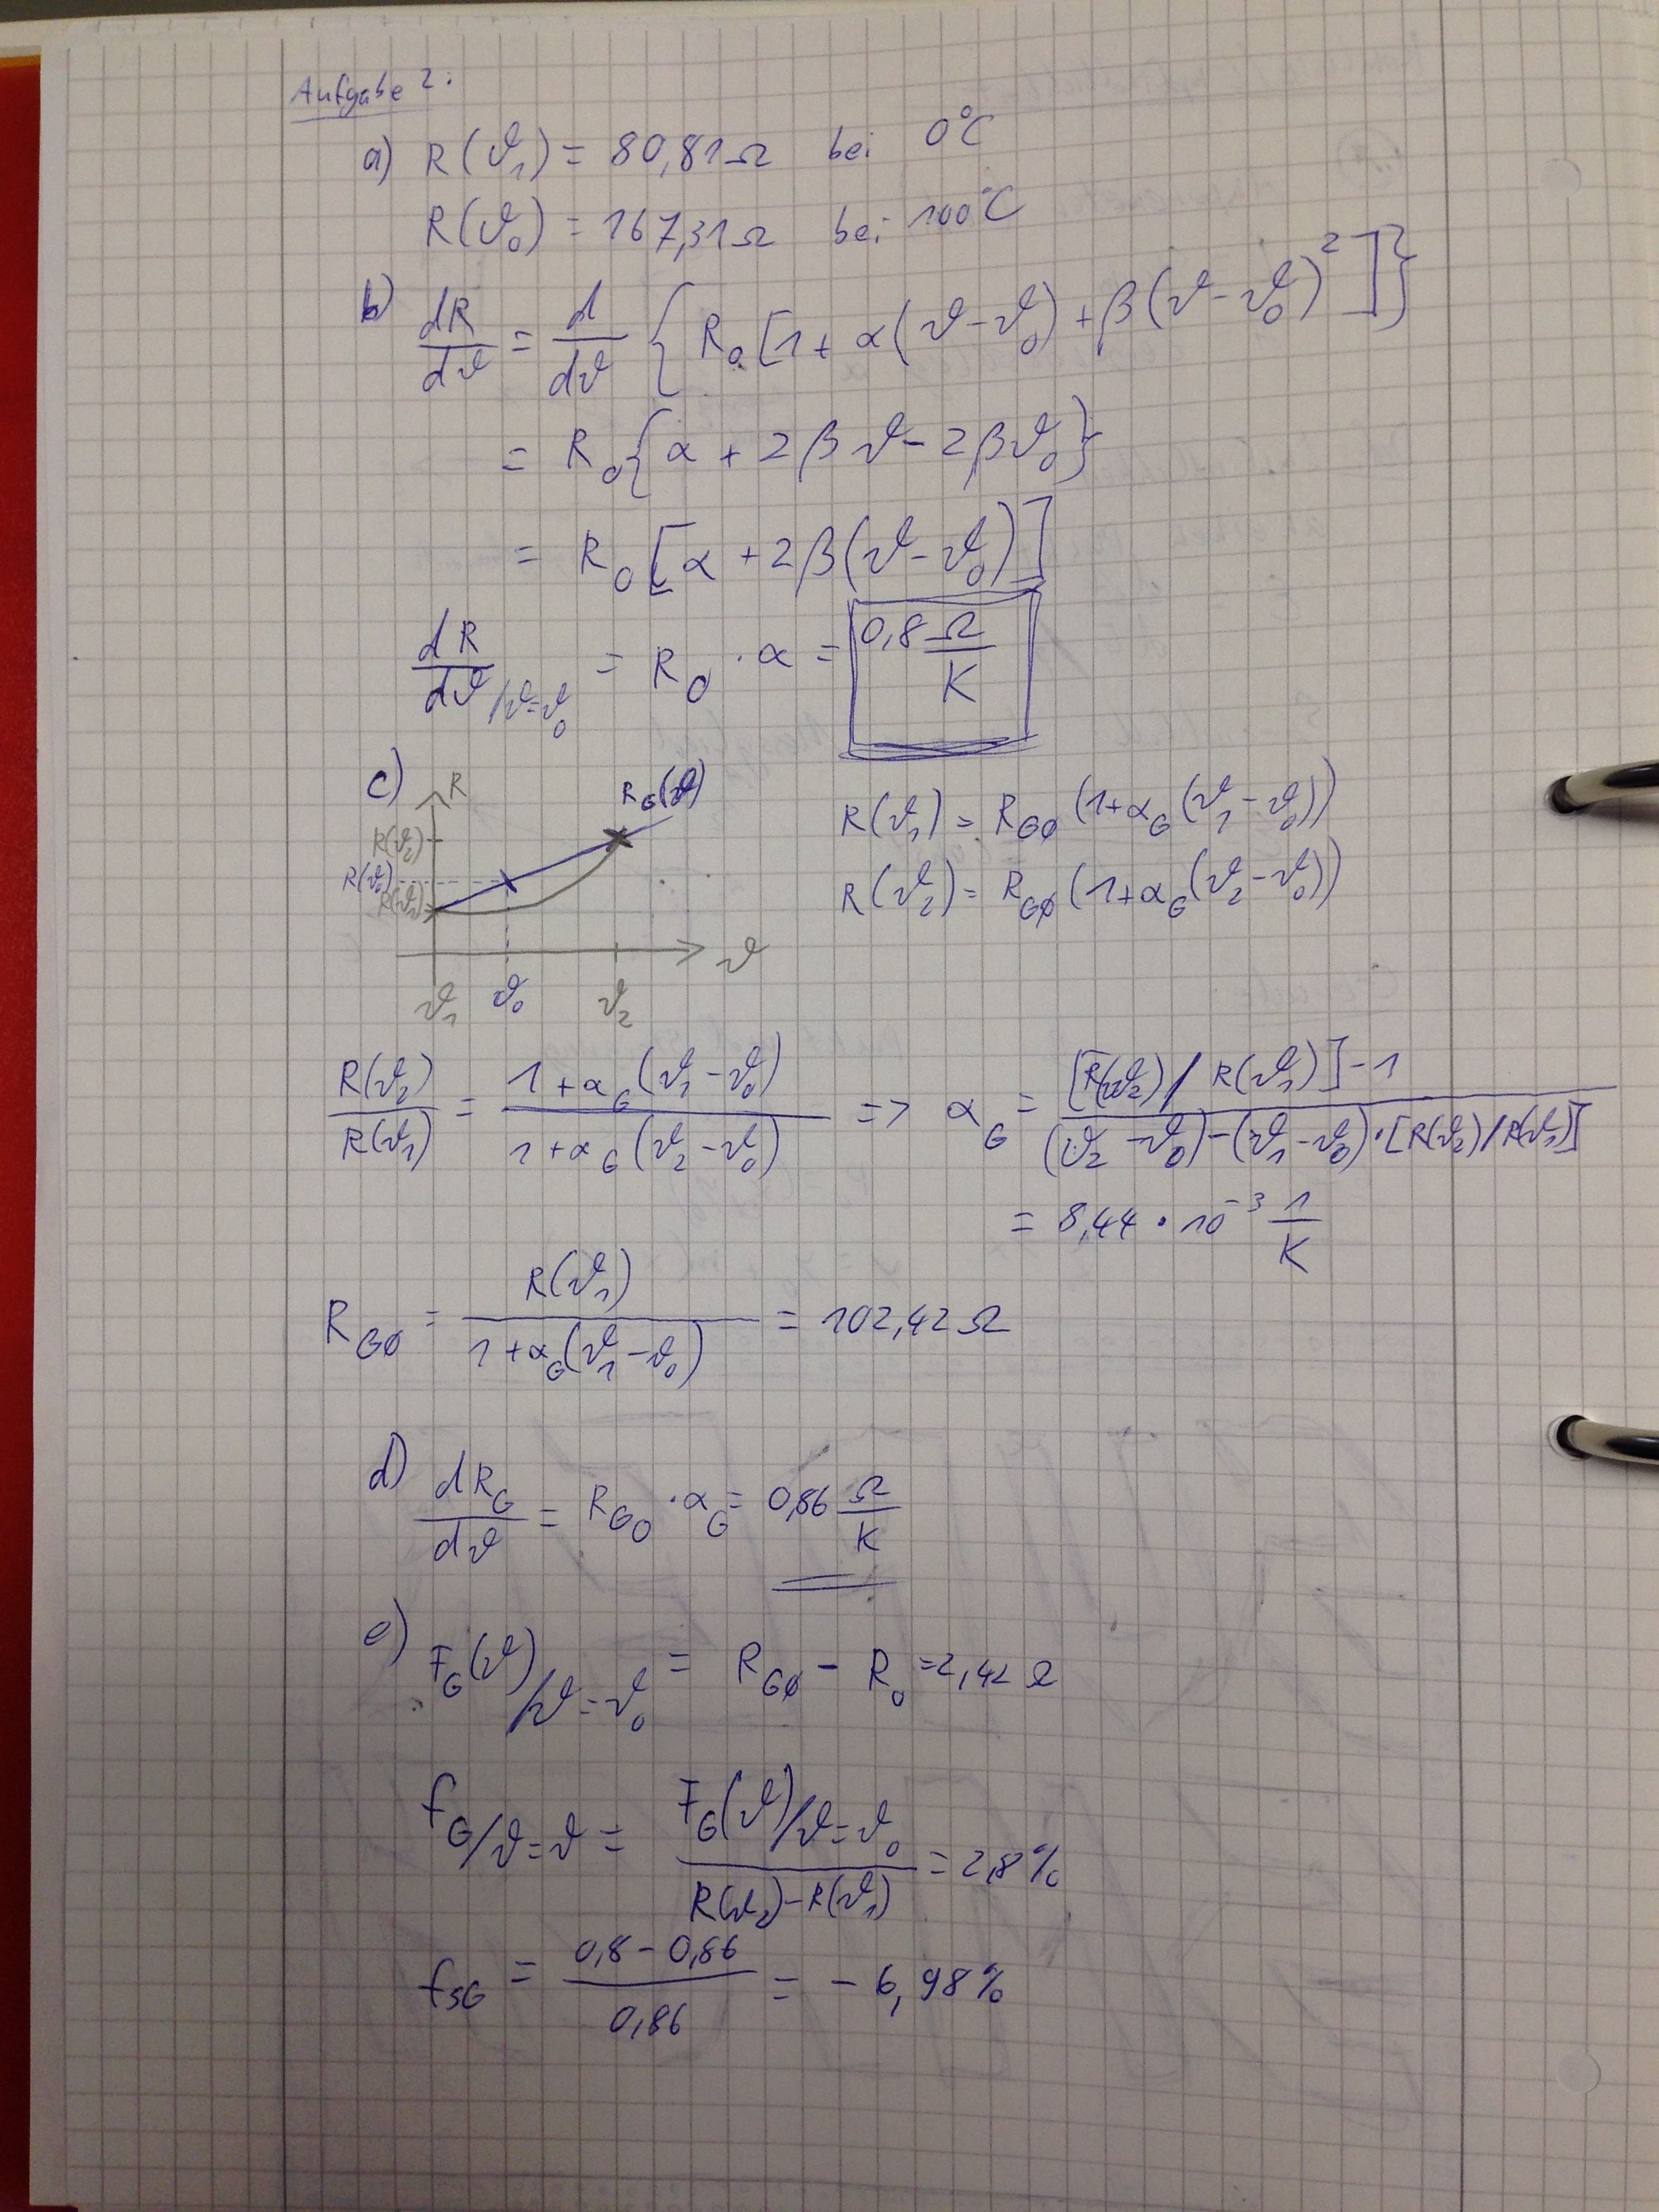 Aufgabe 2:
a) R(ϑ₁) = 80,81Ω bei 0°C
R(ϑ₀) = 167,31Ω bei 100°C
b) dR/dϑ = d/dϑ {R₀[1+α(ϑ-ϑ₀)+β(ϑ-ϑ₀)²]}
= R₀{α+2βϑ-2βϑ₀}
= R₀[α+2β(ϑ-ϑ₀)]
dR/dϑ /ϑ=ϑ₀ = R₀·α = 0,8 Ω/K
c) R
R_G(ϑ)
R(ϑ₂)
R(ϑ₀)
R(ϑ₁)
ϑ
ϑ₁ ϑ₀ ϑ₂
R(ϑ₁) = R_G0 (1+α_G(ϑ₁-ϑ₀))
R(ϑ₂) = R_G0 (1+α_G(ϑ₂-ϑ₀))
R(ϑ₂)/R(ϑ₁) = (1+α_G(ϑ₁-ϑ₀))/(1+α_G(ϑ₂-ϑ₀)) => α_G = ([R(ϑ₂)/R(ϑ₁)]-1)/((ϑ₂-ϑ₀)-(ϑ₁-ϑ₀)·[R(ϑ₂)/R(ϑ₁)])
= 8,44·10⁻³ 1/K
R_G0 = R(ϑ₁)/(1+α_G(ϑ₁-ϑ₀)) = 102,42Ω
d) dR_G/dϑ = R_G0·α_G = 0,86 Ω/K
e) F_G(ϑ)/ϑ=ϑ₀ = R_G0 - R₀ = 2,42Ω
f_G/ϑ=ϑ = F_G(ϑ)/ϑ=ϑ₀ / (R(ϑ₂)-R(ϑ₁)) = 2,8%
f_SG = (0,8-0,86)/0,86 = -6,98%